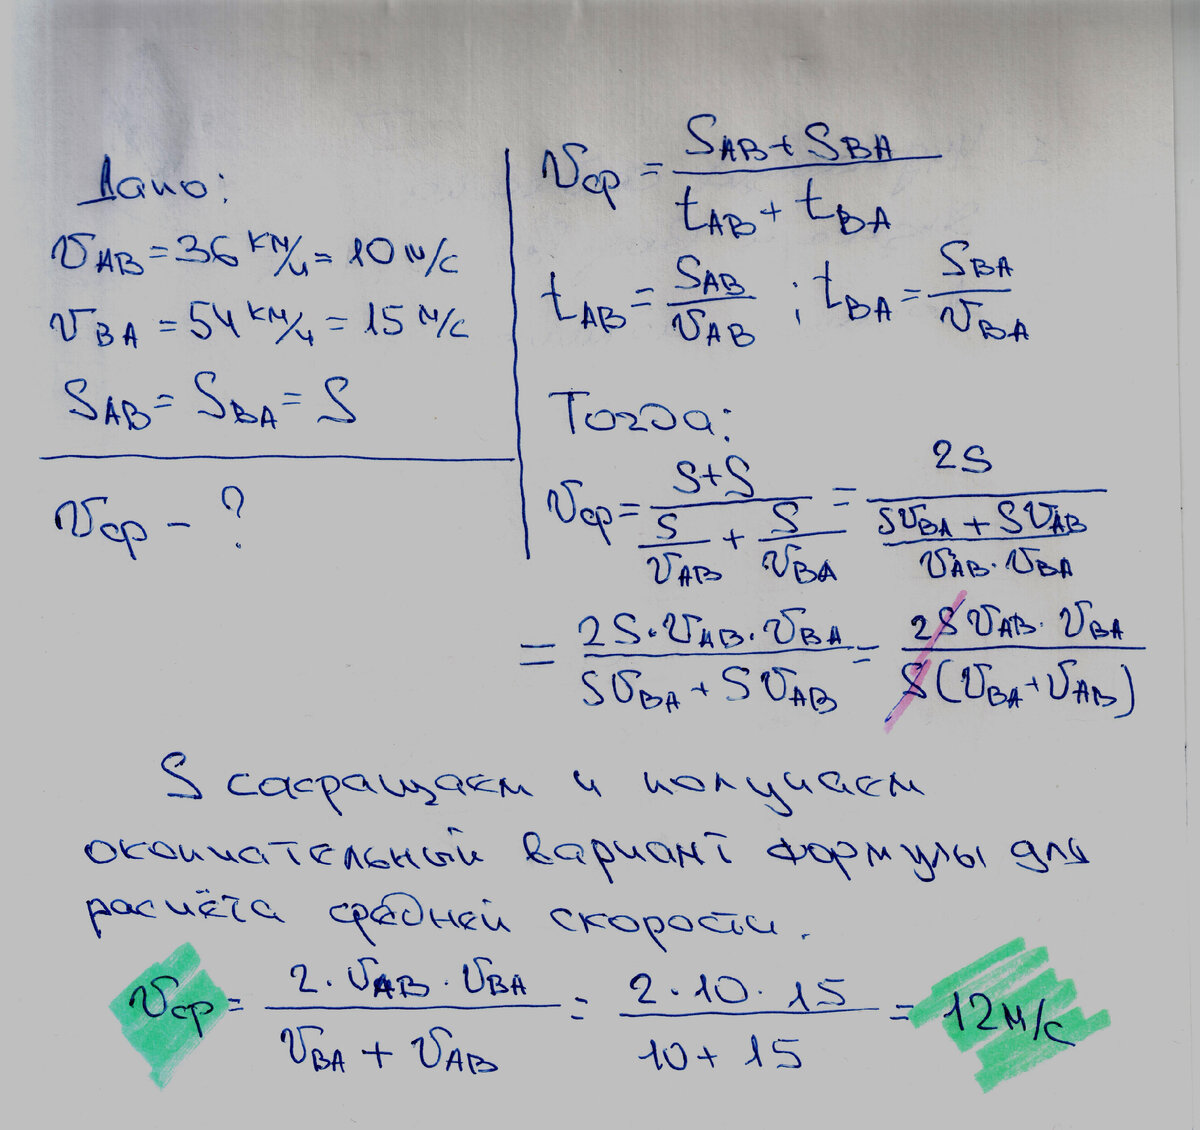 Дано:
υAB = 36 км/ч = 10 м/с
υBA = 54 км/ч = 15 м/с
SAB = SBA = S
υср – ?
υср = (SAB + SBA) / (tAB + tBA)
tAB = SAB / υAB ; tBA = SBA / υBA
Тогда:
υср = (S+S) / (S/υAB + S/υBA) = 2S / ((SυBA + SυAB) / (υAB · υBA))
= (2S · υAB · υBA) / (SυBA + SυAB) = (2S υAB · υBA) / (S(υBA + υAB))
S сокращаем и получаем
окончательный вариант формулы для
расчёта средней скорости.
υср = (2 · υAB · υBA) / (υBA + υAB) = (2 · 10 · 15) / (10 + 15) = 12 м/с